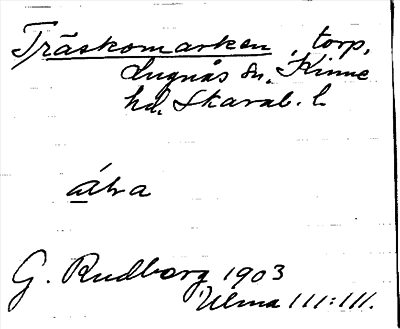 Träskomarken, torp,
Lugnås sn. Kinne
hd. Skarab. l.
G. Rudberg 1903
Ulma 111:111.